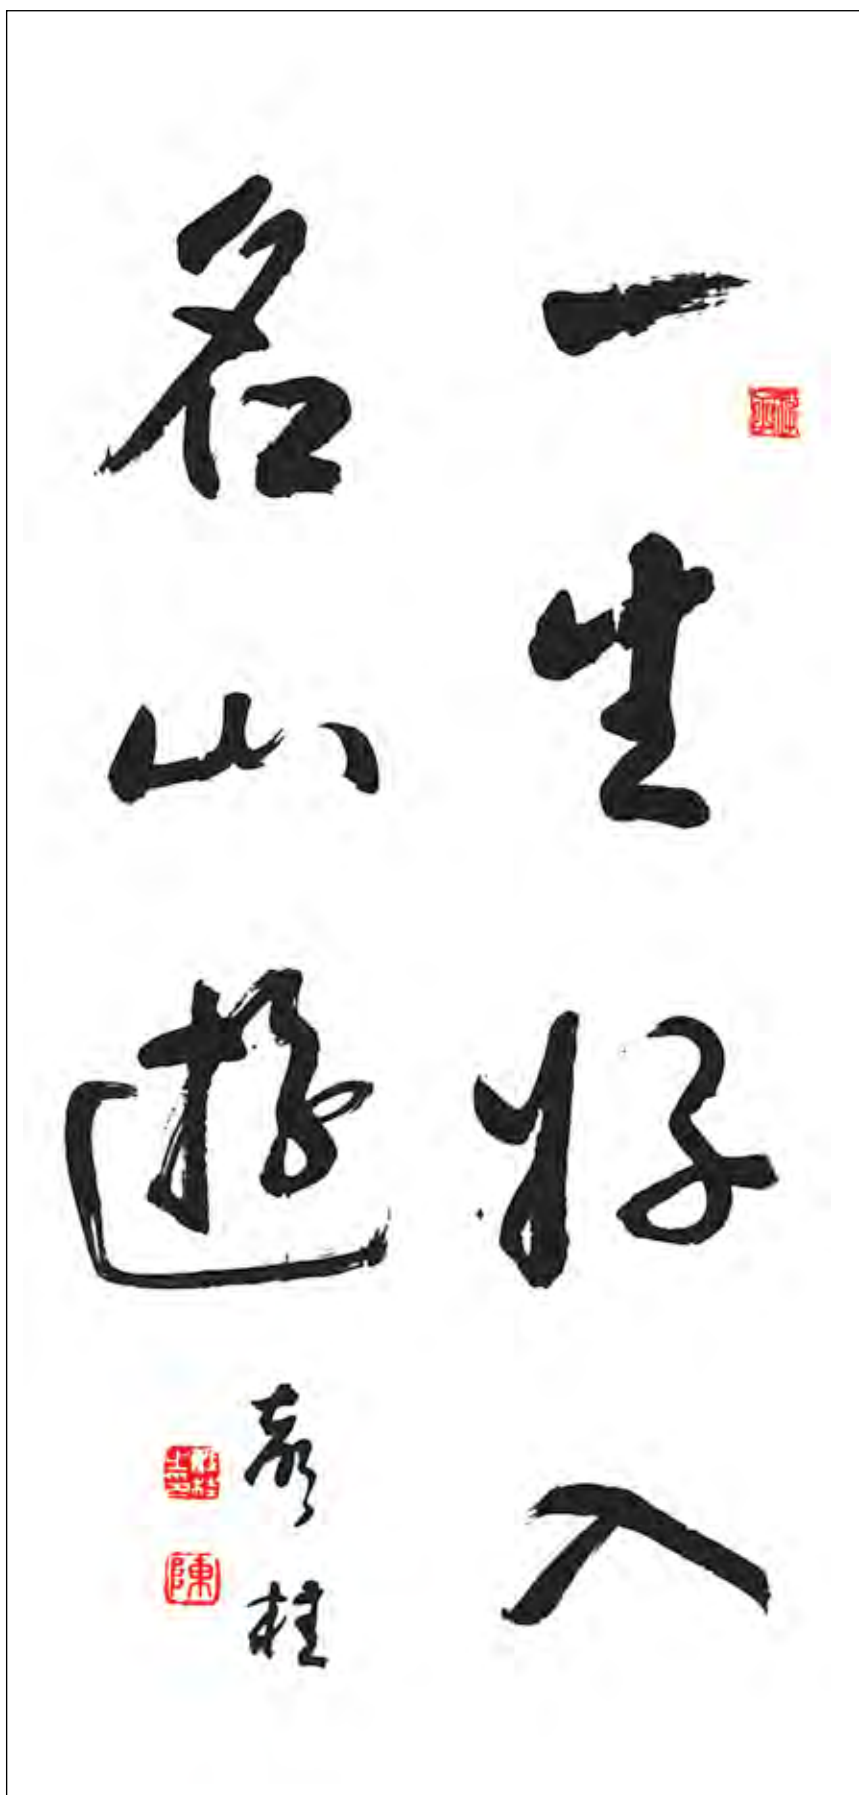 一生好入
名山遊
桂
陳